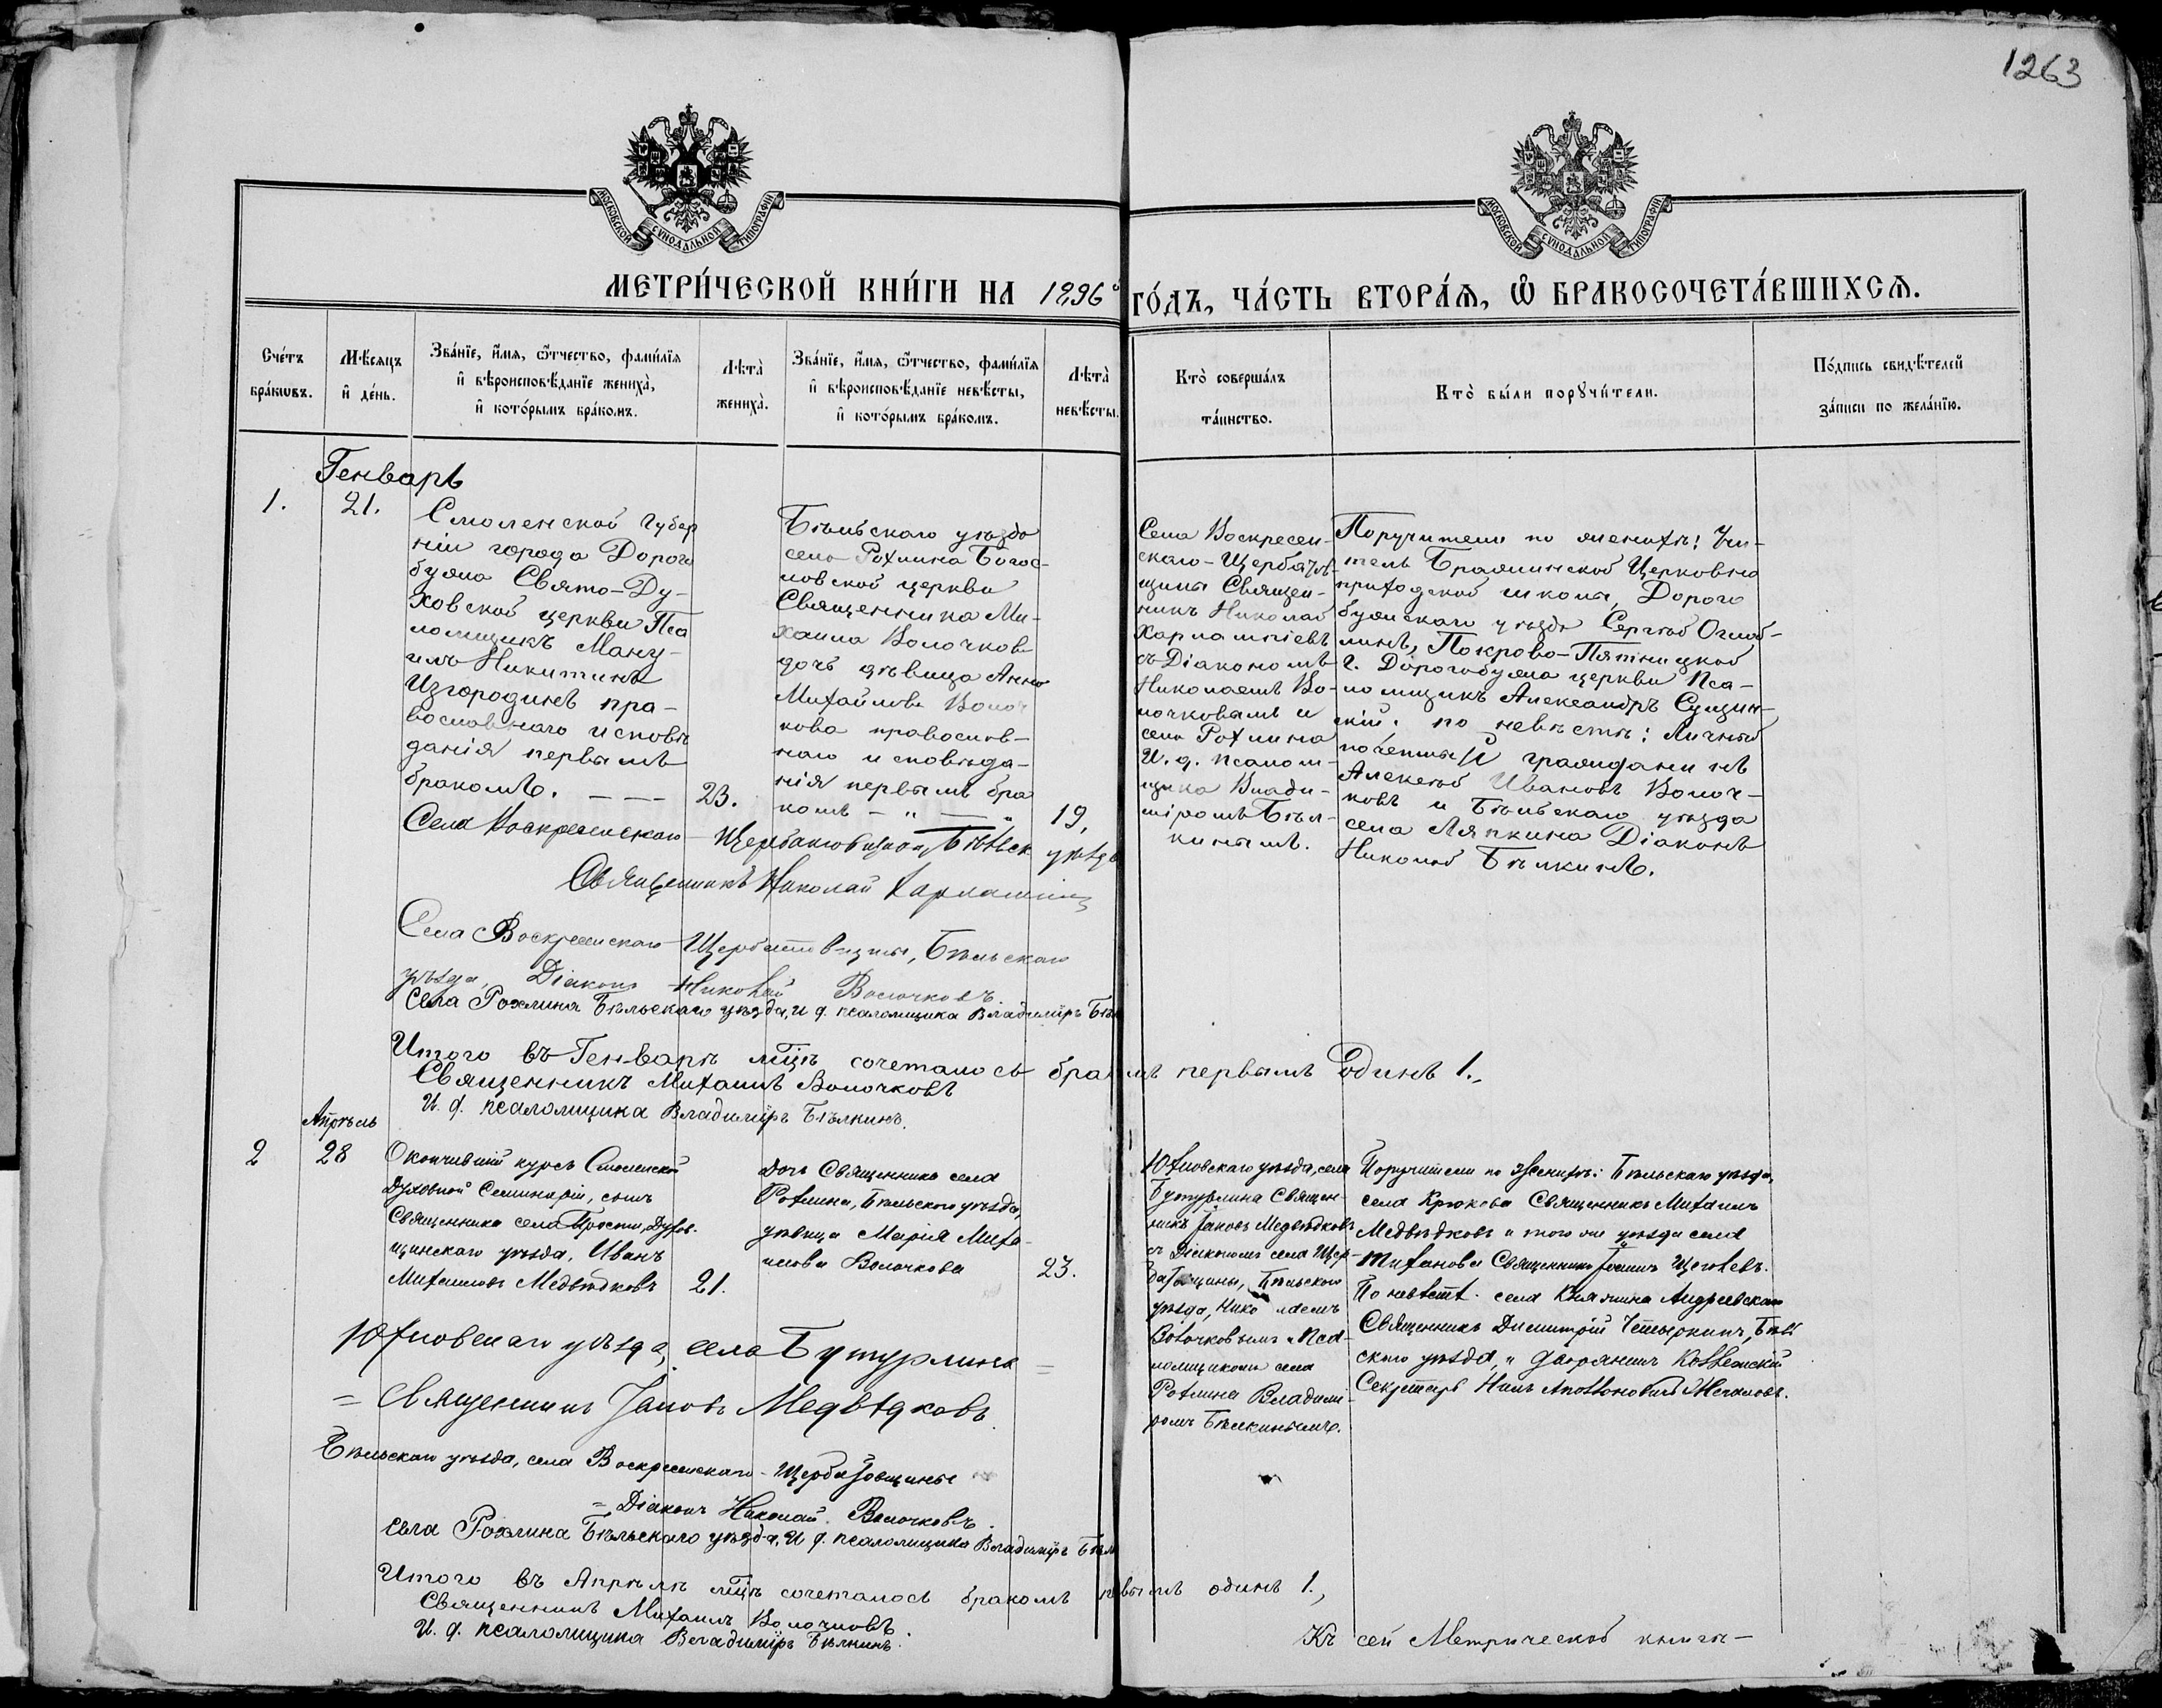 1263
МОСКОВСКОЙ СУНОДАЛЬНОЙ ТИПОГРАФІИ
МОСКОВСКОЙ СУНОДАЛЬНОЙ ТИПОГРАФІИ
МЕТРИ́ЧЕСКОЙ КНИ́ГИ НА 1896й ГО́ДЪ, ЧА́СТЬ ВТОРА́Ѧ, Ѡ҆ БРАКОСОЧЕТА́ВШИХСѦ.
Сче́тъ
бра́кѡвъ.
Мѣ́сяцъ
и҆ де́нь.
Зва́нїе, и҆́мя, ѻ҆́тчество, фами́лїя
и҆ вѣроисповѣ́данїе жениха̀,
и҆ кото́рымъ бра́комъ.
Лѣта̀
жениха̀.
Зва́нїе, и҆́мя, ѻ҆́тчество, фами́лїя
и҆ вѣроисповѣ́данїе невѣ́сты,
и҆ кото́рымъ бра́комъ.
Лѣта̀
невѣ́сты.
Кто̀ соверша́лъ
та́инство.
Кто̀ бы́ли порꙋчи́тели.
По́дпись свидѣ́телей
за́писи по жела́нїю.
Генварь
1.
21.
Смоленской губер
ніи города Дорого
бужа Свято-Ду-
ховской церкви Пса
ломщикъ Ману-
илъ Никитинъ
Изгородинъ пра-
вославнаго исповѣ
данія первымъ
бракомъ. — —
23.
Бѣльскаго уѣзда
села Рохлина Богос-
ловской церкви
Священника Ми-
хаила Волочкова
дочь дѣвица Анна
Михайлова Волоч
кова православ-
наго исповѣда-
нія первымъ бра
комъ — „ — „
19.
Села Воскресен-
скаго-Щербатов-
щины Священ-
никъ Николай
Харлампіевъ
съ Діакономъ
Николаемъ Во-
лочковымъ и
села Рохлина
И. д. псалом-
щика Влади-
міромъ Бѣл-
кинымъ.
Поручители по женихѣ: Учи-
тель Бражинской Церковно
приходской школы, Дорого
бужскаго уѣзда Сергѣй Оглоб-
линъ, Покрово-Пятницкой
г. Дорогобужа церкви Пса-
ломщикъ Александръ Сущин-
скій. по невѣстѣ: Личный
почетный гражданинъ
Алексѣй Ивановъ Волоч-
ковъ и Бѣльскаго уѣзда
села Ляпкина Діаконъ
Николай Бѣлкинъ.
Села Воскресенскаго Щербатовщины Бѣльск уѣзда
Священникъ Николай Харлампіевъ
Села Воскресенскаго Щербатовщины, Бѣльскаго
уѣзда, Діаконъ Николай Волочковъ
Села Рохлина Бѣльскаго уѣзда, И. д. псаломщика Владиміръ Бѣл
Итого въ Генварѣ мцѣ сочеталось бракомъ первымъ одинъ 1.,
Священникъ Михаилъ Волочковъ
И. д. псаломщика Владиміръ Бѣлкинъ.
Апрѣль
2
28
Окончившій курсъ Смоленской
Духовной Семинаріи, сынъ
Священника села Прости, Духов-
щинскаго уѣзда, Иванъ
Михаиловъ Медвѣдковъ
21.
Дочь Священника села
Рохлина, Бѣльскаго уѣзда,
дѣвица Марія Миха-
илова Волочкова
23.
Юхновскаго уѣзда, села
Бутурлина Священ-
никъ Іаковъ Медвѣдковъ
съ Діакономъ села Щер-
батовщины, Бѣльскаго
уѣзда, Николаемъ
Волочковымъ и Пса-
ломщикомъ села
Рохлина Владими-
ромъ Бѣлкинымъ.
Поручители по женихѣ: Бѣльскаго уѣзда,
села Крюкова Священникъ Михаилъ
Медвѣдковъ и того же уѣзда села
Тиханова Священникъ Іоаннъ Щеглевъ.
По невѣстѣ: села Княжина Андреевскаго
Священникъ Димитрій Четыркинъ, Бѣль
скаго уѣзда, и дворянинъ Коллежскій
Секретарь Нилъ Аполлоновичъ Мечаловъ.
Юхновскаго уѣзда, села Бутурлина =
= Священникъ Іаковъ Медвѣдковъ.
Бѣльскаго уѣзда, села Воскресенскаго-Щербатовщины
= Діаконъ Николай Волочковъ.
Села Рохлина Бѣльскаго уѣзда, И. д. псаломщика Владиміръ Бѣл
Итого въ Апрѣлѣ мцѣ сочеталось бракомъ первымъ одинъ 1.,
Священникъ Михаилъ Волочковъ.
И. д. псаломщика Владиміръ Бѣлкинъ.
Къ сей Метрической книгѣ —